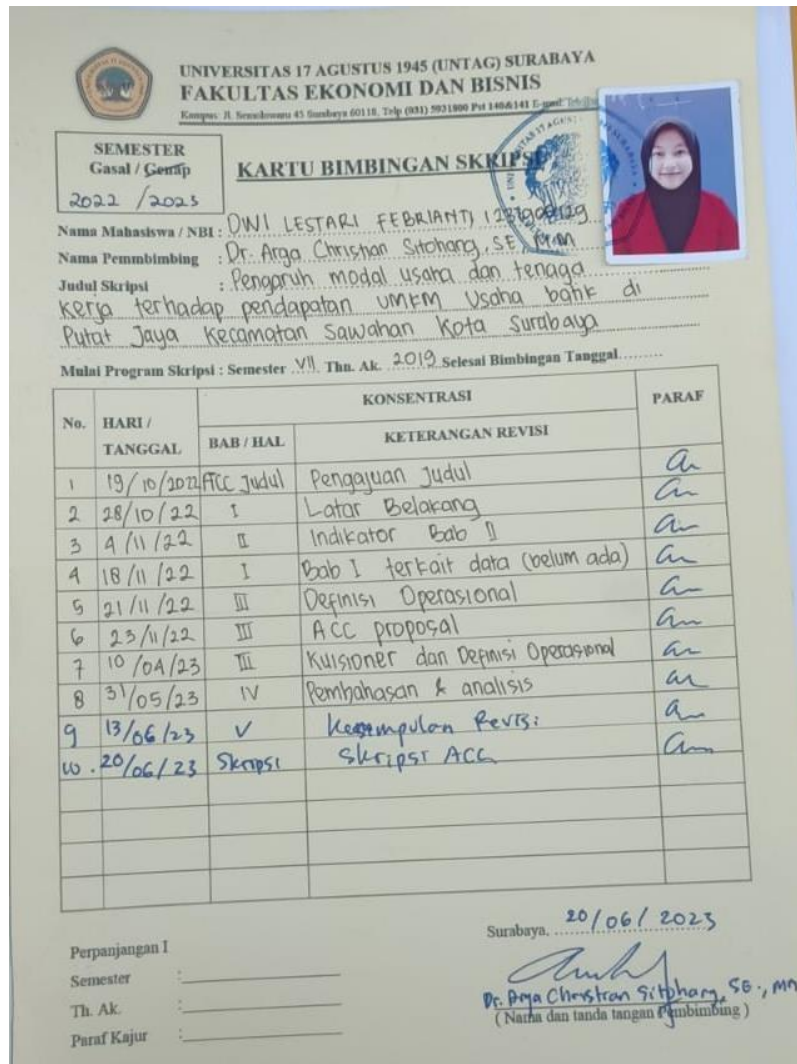 UNIVERSITAS 17 AGUSTUS 1945 (UNTAG) SURABAYA
FAKULTAS EKONOMI DAN BISNIS
Kampus: Jl. Semolowaru 45 Surabaya 60118, Telp (031) 5931800 Pst 140&141 E-mail:
SEMESTER
Gasal / Genap
2022 / 2023
KARTU BIMBINGAN SKRIPSI
Nama Mahasiswa / NBI : DWI LESTARI FEBRIANTI
Nama Pemmbimbing : Dr. Arga Christian Sitohang, SE, M.M
Judul Skripsi : Pengaruh modal usaha dan tenaga
kerja terhadap pendapatan UMKM Usaha batik di
Putat Jaya Kecamatan Sawahan Kota Surabaya
Mulai Program Skripsi : Semester VII Thn. Ak. 2019 Selesai Bimbingan Tanggal.........
No. HARI / TANGGAL KONSENTRASI PARAF
BAB / HAL KETERANGAN REVISI
1 19/10/2022 ACC Judul Pengajuan Judul
2 28/10/22 I Latar Belakang
3 4/11/22 II Indikator Bab II
4 18/11/22 I Bab I terkait data (belum ada)
5 21/11/22 III Definisi Operasional
6 23/11/22 III ACC proposal
7 10/04/23 III Kuisioner dan Definisi Operasional
8 31/05/23 IV Pembahasan & analisis
9 13/06/23 V Kesimpulan Revisi
10. 20/06/23 Skripsi Skripsi ACC
Surabaya, 20/06/2023
Perpanjangan I
Semester :
Th. Ak. :
Paraf Kajur :
Dr. Arga Christian Sitohang, SE., MM
( Nama dan tanda tangan Pembimbing )